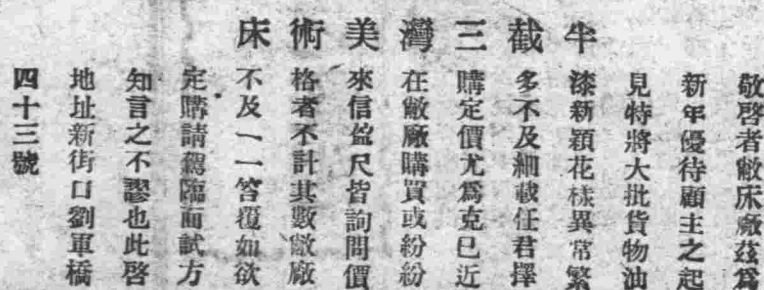 牛截三灣美術床
敬啓者敝床廠茲爲
新年優待顧主之起
見特將大批貨物油
漆新穎花樣異常繁
多不及細載任君擇
購定價尤爲克已近
在敝廠購買或紛紛
來信盈尺皆詢問價
格者不計其數敝廠
不及一一答覆如欲
定購請駕臨面試方
知言之不謬也此啓
地址新街口劉軍橋
四十三號